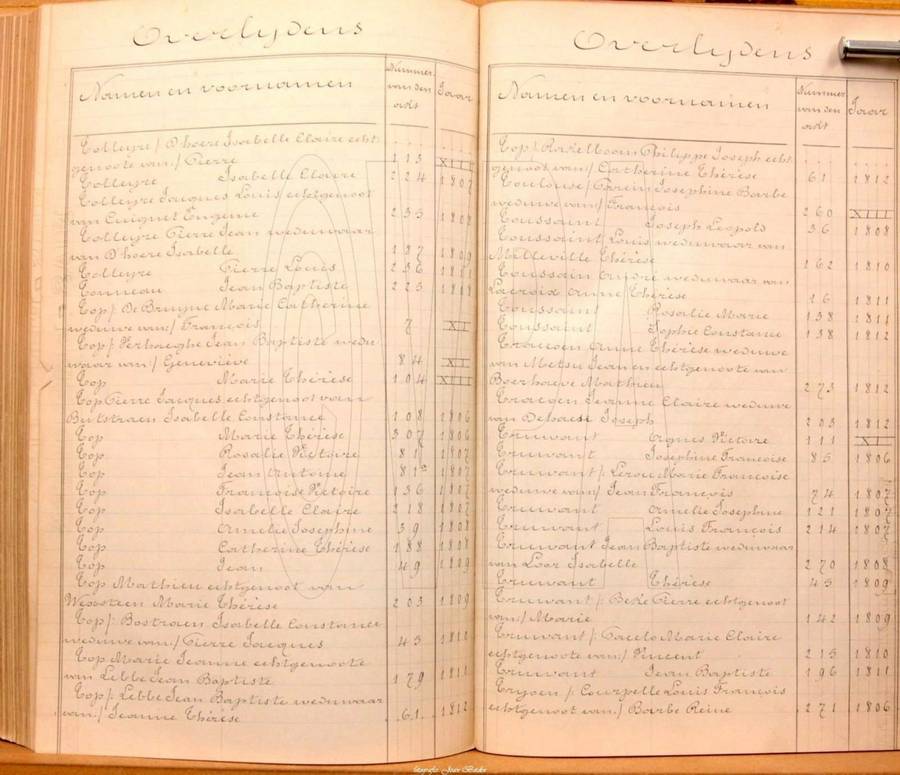 Overlijdens
Namen en voornamen Nummer van den akt Jaar
Tolleyre / D'hoere Isabelle Claire echt-
genoote van / Pierre 113 XIII
Tolleyre Isabelle Claire 224 1807
Tolleyre Jacques Louis echtgenoot
van Cuignet Eugenie 233 1807
Tolleyre Pierre Jean weduwaar
van D'hoere Isabelle 187 1809
Tolleyre Pierre Louis 236 1811
Tonneau Jean Baptiste 223 1811
Top / De Bruyne Marie Catherine
weduwe van / François 7 XI
Top / Verhaeghe Jean Baptiste wedu
waar van / Geneviève 84 XI
Top Marie Thérèse 104 XIII
Top Pierre Jacques echtgenoot van
Butstraen Isabelle Constance 108 1806
Top Marie Thérèse 307 1806
Top Rosalie Victoire 81 1807
Top Jean Antoine 81 1807
Top Françoise Victoire 136 1807
Top Isabelle Claire 218 1807
Top Amelie Josephine 39 1808
Top Catherine Thérèse 188 1808
Top Jean 49 1809
Top Mathieu echtgenoot van
Weissteen Marie Thérèse 203 1809
Top / Bostraen Isabelle Constance
weduwe van / Pierre Jacques 43 1810
Top Marie Jeanne echtgenoote
van Lebbe Jean Baptiste 179 1811
Top / Lebbe Jean Baptiste weduwaar
van / Jeanne Thérèse 61 1812
Overlijdens
Namen en voornamen Nummer van den akt Jaar
Top / Ravelboom Philippe Joseph echt-
genoot van / Catherine Thérèse 61 1812
Toulouse / Josephine Barbe
weduwe van / François 260 XIII
Toussaint Joseph Leopold 36 1808
Toussaint Louis weduwaar van
Malleville Thérèse 162 1810
Toussain André weduwaar van
Lacroix Anne Thérèse 16 1811
Toussaint Rosalie Marie 138 1811
Toussaint Sophie Constance 138 1812
Anne Thérèse weduwe
van Metsu Jean en echtgenoote van
Boerhaeve Mathieu 273 1812
Jeanne Claire weduwe
van Dehaese Joseph 203 1812
Truwant Agnes Victoire 111 XI
Truwant Josephine Françoise 85 1806
Truwant / Marie Françoise
weduwe van / Jean François 74 1807
Truwant Amelie Josephine 121 1807
Truwant Louis François 214 1807
Truwant Jean Baptiste weduwaar
van Loor Isabelle 270 1808
Truwant Thérèse 43 1809
Truwant / Beke Pierre echtgenoot
van / Marie 142 1809
Truwant / Marie Claire
echtgenoote van / Vincent 213 1810
Truwant Jean Baptiste 196 1811
Tryoen / Courpelle Louis François
echtgenoot van / Barbe Reine 271 1806